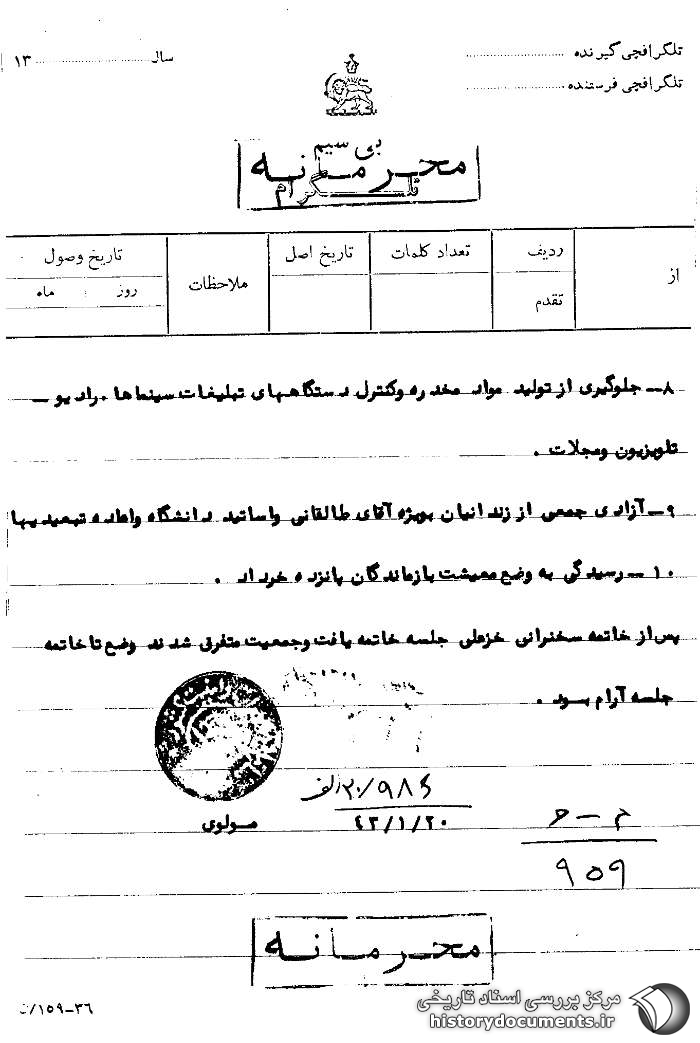 تلگرافچی گیرنده ........................
سال ........................ ۱۳
تلگرافچی فرستنده ........................
بی سیم
محرمانه
تلگرام
از
ردیف
تقدم
تعداد کلمات
تاریخ اصل
ملاحظات
تاریخ وصول
روز : ماه
۸ــ جلوگیری از تولید مواد مخدره وکنترل دستگاههای تبلیغات سینماها . رادیو ــ
تلویزیون ومجلات .
۹ــ آزادی جمعی از زندانیان بویژه آقای طالقانی واساتید دانشگاه واعاده تبعیدیها
۱۰ــ رسیدگی به وضع معیشت بازماندگان پانزده خرداد .
پس از خاتمه سخنرانی خزعلی جلسه خاتمه یافت وجمعیت متفرق شدند وضع تا خاتمه
جلسه آرام بود .
۲۰/۹۸۶الف
۴۳/۱/۲۰
مولوی
م ــ ح
۹۵۹
محرمانه
۱۵۹-۳۶/
مرکز بررسی اسناد تاریخی
historydocuments.ir